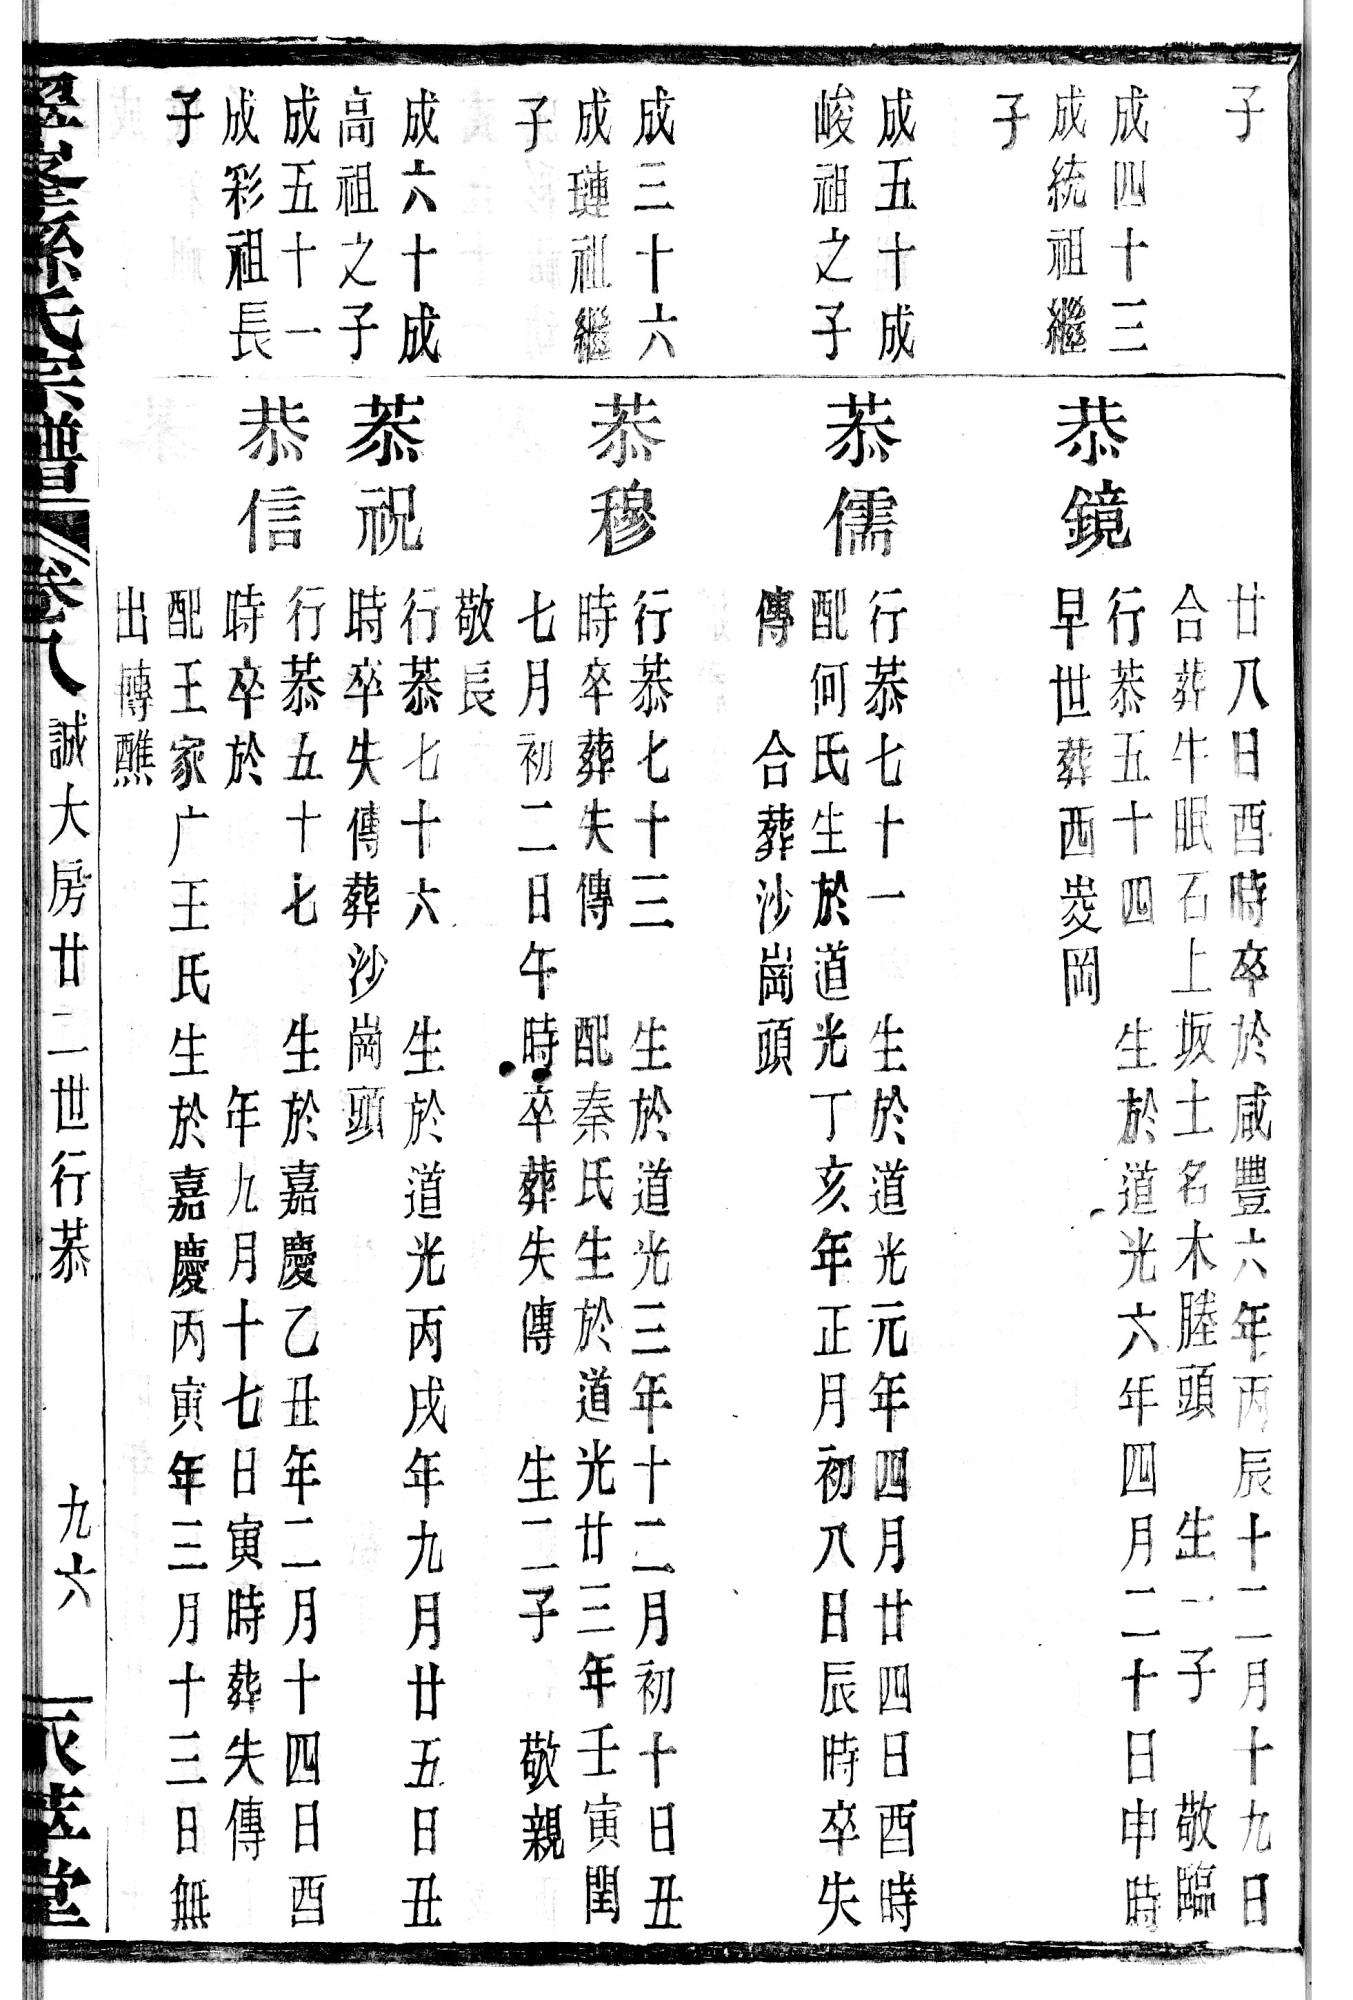 子
廿八日酉時卒於咸豐六年丙辰十二月十九日
合葬牛眠石上坂土名木塍頭 生一子 敬臨
成四十三
成統祖繼
子
恭鏡
行恭五十四 生於道光六年四月二十日申時
早世葬西崗
成五十成
峻祖之子
恭儒
行恭七十一 生於道光元年四月廿四日酉時
配何氏生於道光丁亥年正月初八日辰時卒失
傳 合葬沙崗頭
成三十六
成璉祖繼
子
恭穆
行恭七十三 生於道光三年十二月初十日丑
時卒葬失傳 配秦氏生於道光廿三年壬寅閏
七月初二日午時卒葬失傳 生二子 敬親
敬長
成六十成
高祖之子
恭祝
行恭七十六 生於道光丙戌年九月廿五日丑
時卒失傳葬沙崗頭
成五十一
成彩祖長
子
恭信
行恭五十七 生於嘉慶乙丑年二月十四日酉
時卒於 年九月十七日寅時葬失傳
配王家广王氏生於嘉慶丙寅年三月十三日無
出轉醮
孫氏宗譜 卷八 誠大房廿二世行恭 九六 萃堂